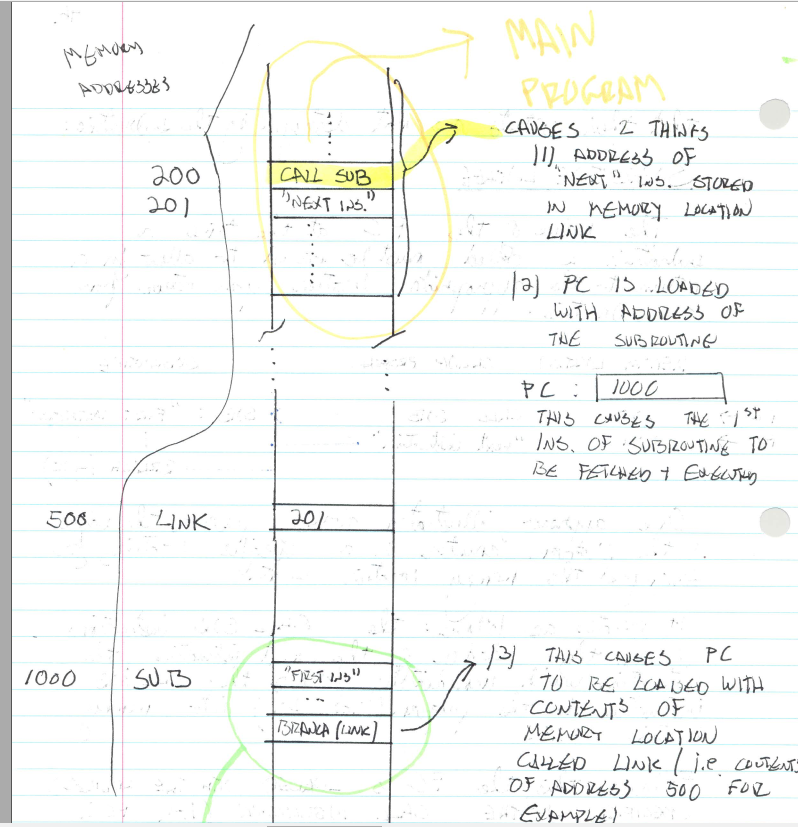 MEMORY
ADDRESSES
MAIN
PROGRAM
200 CALL SUB
201 "NEXT INS."
CAUSES 2 THINGS
(1) ADDRESS OF
"NEXT" INS. STORED
IN MEMORY LOCATION
LINK
(2) PC IS LOADED
WITH ADDRESS OF
THE SUBROUTINE
PC : 1000
THIS CAUSES THE 1ST
INS. OF SUBROUTINE TO
BE FETCHED + EXECUTED
500 LINK 201
1000 SUB "FIRST INS"
BRANCH (LINK)
(3) THIS CAUSES PC
TO BE LOADED WITH
CONTENTS OF
MEMORY LOCATION
CALLED LINK (i.e. CONTENTS
OF ADDRESS 500 FOR
EXAMPLE)